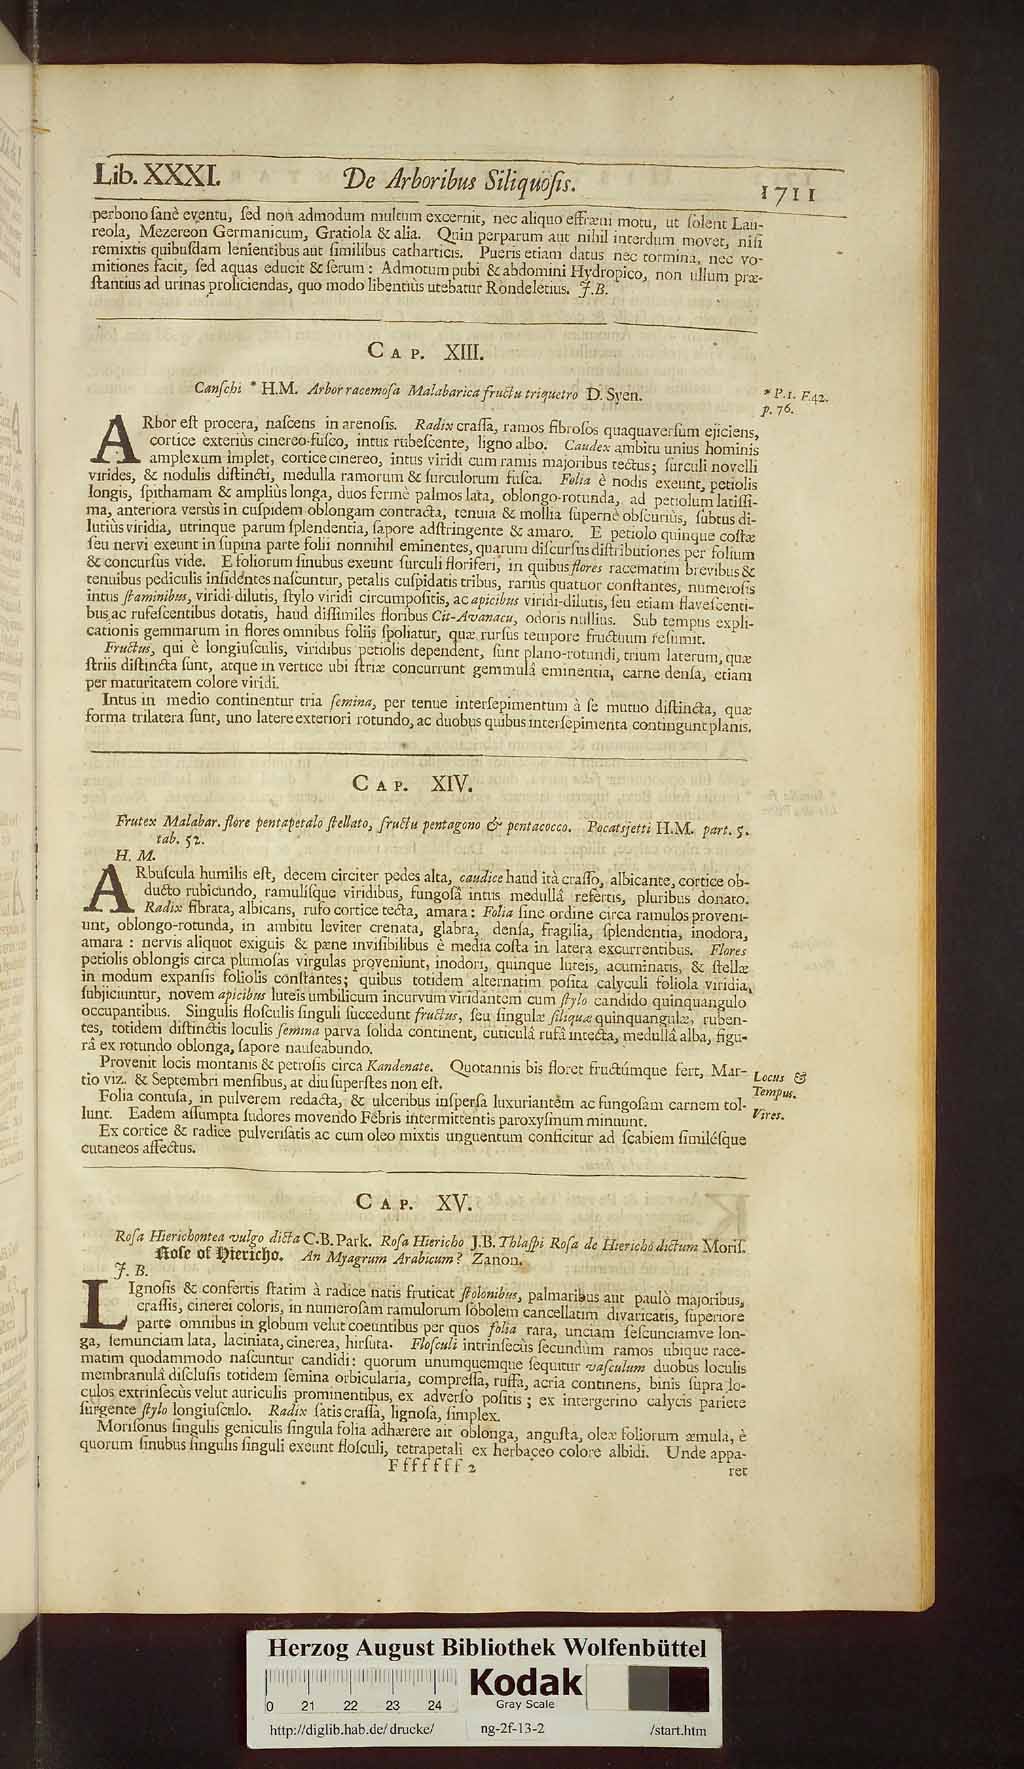 Lib. XXXI. De Arboribus Siliquoſis. 1711
perbono ſanè eventu, ſed non admodum multum excernit, nec aliquo effræni motu, ut ſolent Lau-
reola, Mezereon Germanicum, Gratiola & alia. Quin perparum aut nihil interdum movet, niſi
remixtis quibuſdam lenientibus aut ſimilibus catharticis. Pueris etiam datus nec tormina, nec vo-
mitiones facit, ſed aquas educit & ſerum: Admotum pubi & abdomini Hydropico, non ullum præ-
ſtantius ad urinas proliciendas, quo modo libentiùs utebatur Rondeletius. J. B.
CAP. XIII.
Canſchi * H.M. Arbor racemoſa Malabarica fructu triquetro D. Syen.
* P.1. F.42.
p. 76.
ARbor eſt procera, naſcens in arenoſis. Radix craſſa, ramos fibroſos quaquaverſum ejiciens,
cortice exteriùs cinereo-fuſco, intus rubeſcente, ligno albo. Caudex ambitu unius hominis
amplexum implet, cortice cinereo, intus viridi cum ramis majoribus tectus; ſurculi novelli
virides, & nodulis diſtincti, medulla ramorum & ſurculorum fuſca. Folia è nodis exeunt, petiolis
longis, ſpithamam & ampliùs longa, duos fermè palmos lata, oblongo-rotunda, ad petiolum latiſſi-
ma, anteriora versùs in cuſpidem oblongam contracta, tenuia & mollia ſupernè obſcuriùs, ſubtus di-
lutiùs viridia, utrinque parum ſplendentia, ſapore adſtringente & amaro. E petiolo quinque coſtæ
ſeu nervi exeunt in ſupina parte folii nonnihil eminentes, quarum diſcurſus diſtributiones per folium
& concurſus vide. E foliorum ſinubus exeunt ſurculi floriferi, in quibus flores racematim brevibus &
tenuibus pediculis inſidentes naſcuntur, petalis cuſpidatis tribus, rariùs quatuor conſtantes, numeroſis
intus ſtaminibus, viridi-dilutis, ſtylo viridi circumpoſitis, ac apicibus viridi-dilutis, ſeu etiam flaveſcenti-
bus ac rufeſcentibus dotatis, haud diſſimiles floribus Cit-Avanacu, odoris nullius. Sub tempus expli-
cationis gemmarum in flores omnibus foliis ſpoliatur, quæ rurſus tempore fructuum reſumit.
Fructus, qui è longiuſculis, viridibus petiolis dependent, ſunt plano-rotundi, trium laterum, quæ
ſtriis diſtincta ſunt, atque in vertice ubi ſtriæ concurrunt gemmulâ eminentia, carne denſa, etiam
per maturitatem colore viridi.
Intus in medio continentur tria ſemina, per tenue interſepimentum à ſe mutuo diſtincta, quæ
forma trilatera ſunt, uno latere exteriori rotundo, ac duobus quibus interſepimenta contingunt planis.
CAP. XIV.
Frutex Malabar. flore pentapetalo ſtellato, fructu pentagono & pentacocco. Pocatsjetti H.M. part. 5.
tab. 52.
H. M.
ARbuſcula humilis eſt, decem circiter pedes alta, caudice haud ità craſſo, albicante, cortice ob-
ducto rubicundo, ramuliſque viridibus, fungoſâ intus medullâ refertis, pluribus donato.
Radix fibrata, albicans, rufo cortice tecta, amara: Folia ſine ordine circa ramulos proveni-
unt, oblongo-rotunda, in ambitu leviter crenata, glabra, denſa, fragilia, ſplendentia, inodora,
amara: nervis aliquot exiguis & pæne inviſibilibus è media coſta in latera excurrentibus. Flores
petiolis oblongis circa plumoſas virgulas proveniunt, inodori, quinque luteis, acuminatis, & ſtellæ
in modum expanſis foliolis conſtantes; quibus totidem alternatim poſita calyculi foliola viridia,
ſubjiciuntur, novem apicibus luteis umbilicum incurvum viridantem cum ſtylo candido quinquangulo
occupantibus. Singulis floſculis ſinguli ſuccedunt fructus, ſeu ſingulæ ſiliquæ quinquangulæ, ruben-
tes, totidem diſtinctis loculis ſemina parva ſolida continent, cuticulâ rufâ intecta, medullâ alba, figu-
râ ex rotundo oblonga, ſapore nauſeabundo.
Provenit locis montanis & petroſis circa Kandenate. Quotannis bis floret fructúmque fert, Mar-
tio viz. & Septembri menſibus, at diu ſuperſtes non eſt.
Locus &
Tempus.
Folia contuſa, in pulverem redacta, & ulceribus inſperſa luxuriantem ac fungoſam carnem tol-
lunt. Eadem aſſumpta ſudores movendo Febris intermittentis paroxyſmum minuunt.
Vires.
Ex cortice & radice pulveriſatis ac cum oleo mixtis unguentum conficitur ad ſcabiem ſimiléſque
cutaneos affectus.
CAP. XV.
Roſa Hierichontea vulgo dicta C.B. Park. Roſa Hiericho J.B. Thlaſpi Roſa de Hiericho dictum Moriſ.
Roſe of Hiericho. An Myagrum Arabicum? Zanon.
J. B.
LIgnoſis & confertis ſtatim à radice natis fruticat ſtolonibus, palmaribus aut paulò majoribus,
craſſis, cinerei coloris, in numeroſam ramulorum ſobolem cancellatim divaricatis, ſuperiore
parte omnibus in globum velut coeuntibus per quos folia rara, unciam ſeſcunciamve lon-
ga, ſemunciam lata, laciniata, cinerea, hirſuta. Floſculi intrinſecùs ſecundùm ramos ubique race-
matim quodammodo naſcuntur candidi: quorum unumquemque ſequitur vaſculum duobus loculis
membranulâ diſcluſis totidem ſemina orbicularia, compreſſa, ruffa, acria continens, binis ſupra lo-
culos extrinſecùs velut auriculis prominentibus, ex adverſo poſitis; ex intergerino calycis pariete
ſurgente ſtylo longiuſculo. Radix ſatis craſſa, lignoſa, ſimplex.
Moriſonus ſingulis geniculis ſingula folia adhærere ait oblonga, anguſta, oleæ foliorum æmula, è
quorum ſinubus ſingulis ſinguli exeunt floſculi, tetrapetali ex herbaceo colore albidi. Unde appa-
Fffffff 2 ret
Herzog August Bibliothek Wolfenbüttel
Kodak
Gray Scale
0 21 22 23 24
http://diglib.hab.de/drucke/ ng-2f-13-2 /start.htm